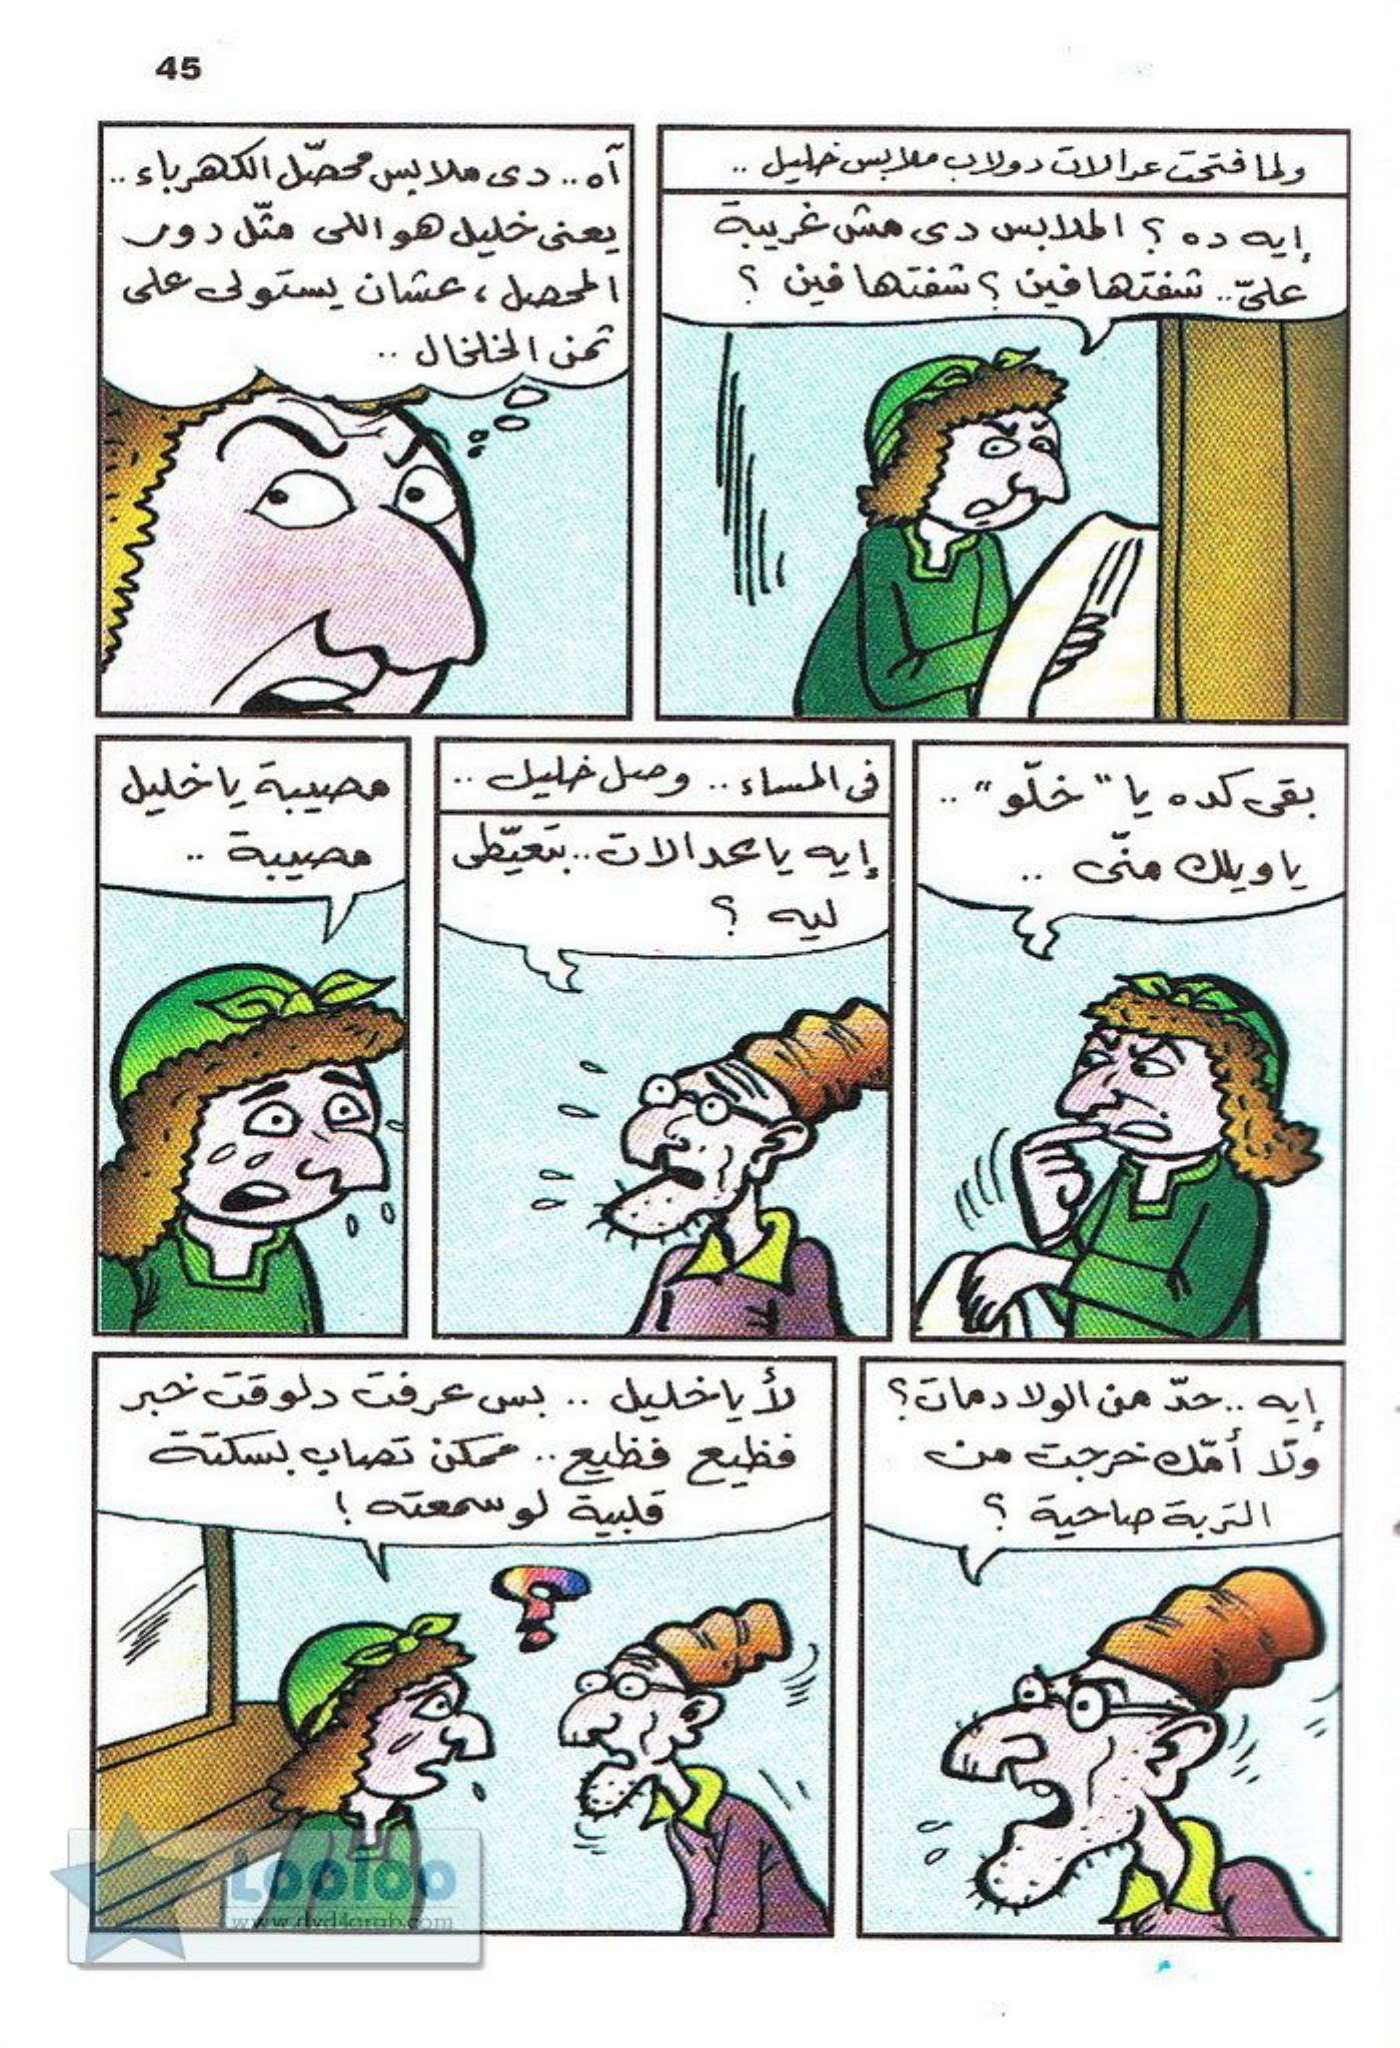 45
ولما فتحت عدالات دولاب ملابس خليل ..
إيه ده ؟ الملابس دى مش غريبة
علىّ.. شفتها فين ؟ شفتها فين ؟
آه.. دى ملابس محصّل الكهرباء ..
يعنى خليل هو اللى مثّل دور
المحصل ، عشان يستولى على
ثمن الخلخال ..
بقى كده يا "خلّو" ..
يا ويلك منّى ..
فى المساء .. وصل خليل ..
إيه يا عدالات .. بتعيّطى
ليه ؟
مصيبة يا خليل
مصيبة ..
إيه .. حدّ من الولاد مات ؟
ولّا أمّك خرجت من
التربة صاحية ؟
لأ يا خليل .. بس عرفت دلوقت خبر
فظيع فظيع .. ممكن تصاب بسكتة
قلبية لو سمعته !
Looloo
www.dvd4arab.com